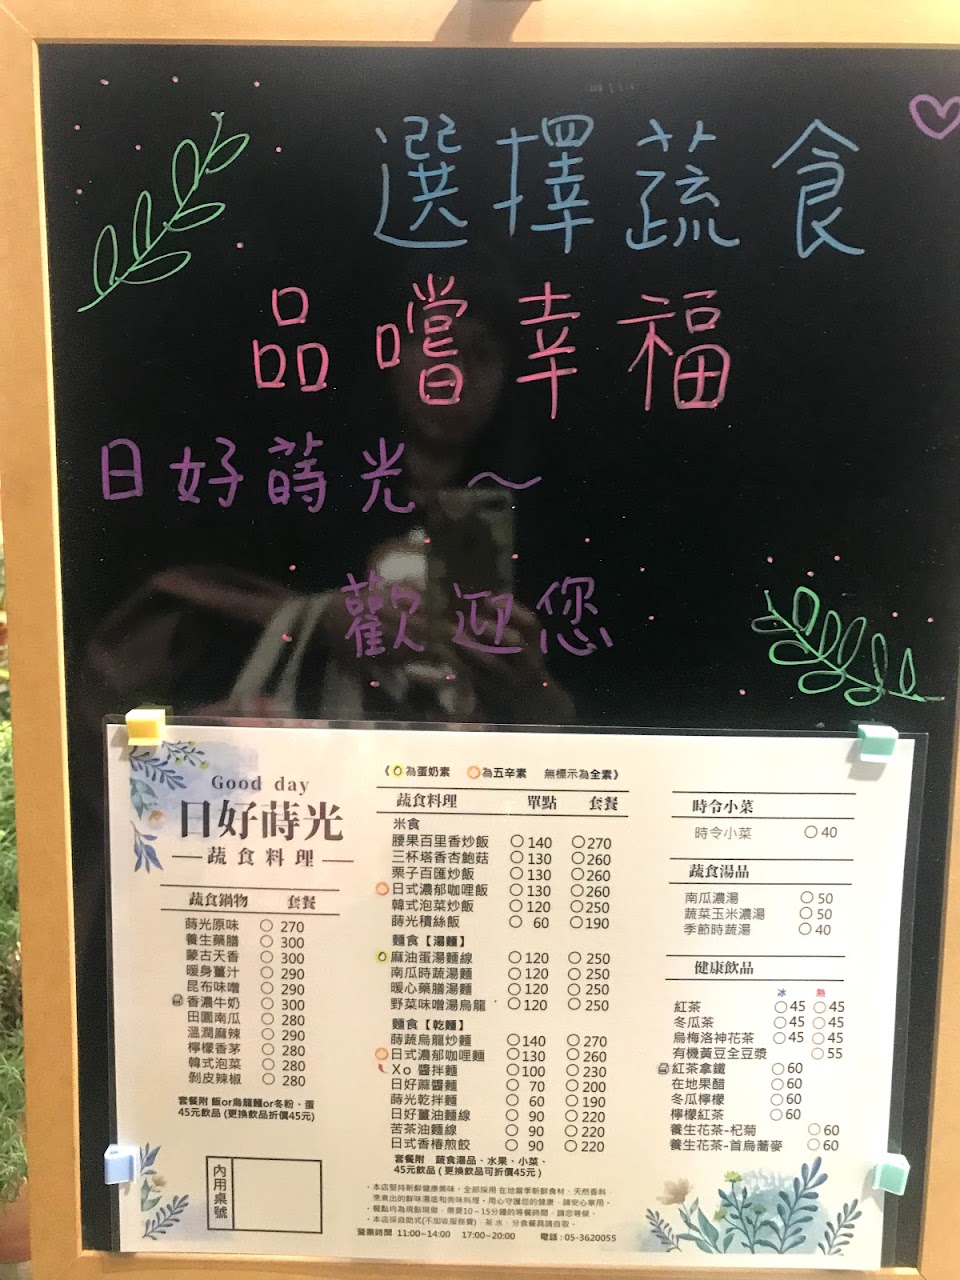 選擇蔬食
品嚐幸福
日好蒔光～
歡迎您
Good day
日好蒔光
蔬食料理
蔬食鍋物 套餐
蒔光原味 270
養生藥膳 300
蒙古天香 300
暖身薑汁 290
昆布味噌 290
香濃牛奶 300
田園南瓜 280
溫潤麻辣 290
檸檬香茅 280
韓式泡菜 280
剝皮辣椒 280
套餐附 飯or烏龍麵or冬粉、蛋
45元飲品 (更換飲品折價45元)
內用桌號
《 為蛋奶素 為五辛素 無標示為全素》
蔬食料理 單點 套餐
米食
腰果百里香炒飯 140 270
三杯塔香杏鮑菇 130 260
栗子百匯炒飯 130 260
日式濃郁咖哩飯 130 260
韓式泡菜炒飯 120 250
蒔光積絲飯 60 190
麵食【湯麵】
麻油蛋湯麵線 120 250
南瓜時蔬湯麵 120 250
暖心藥膳湯麵 120 250
野菜味噌湯烏龍 120 250
麵食【乾麵】
蒔蔬烏龍炒麵 140 270
日式濃郁咖哩麵 130 260
Xo 醬拌麵 100 230
日好蔴醬麵 70 200
蒔光乾拌麵 60 190
日好薑油麵線 90 220
苦茶油麵線 90 220
日式香椿煎餃 90 220
套餐附 蔬食湯品、水果、小菜、
45元飲品 ( 更換飲品可折價45元 )
・本店堅持新鮮健康美味，全部採用在地當季新鮮食材、天然香料，
烹煮出的鮮味湯底和美味料理，用心守護您的健康，請安心享用。
・餐點均為現點現做，需要10～15分鐘的等餐時間，請您等候。
・本店採自助式(不加收服務費)，茶水、分食餐具請自取。
營業時間 11:00~14:00 17:00~20:00 電話 : 05-3620055
時令小菜
時令小菜 40
蔬食湯品
南瓜濃湯 50
蔬菜玉米濃湯 50
季節時蔬湯 40
健康飲品
冰 熱
紅茶 45 45
冬瓜茶 45 45
烏梅洛神花茶 45 45
有機黃豆全豆漿 55
紅茶拿鐵 60
在地果醋 60
冬瓜檸檬 60
檸檬紅茶 60
養生花茶-杞菊 60
養生花茶-首烏蕎麥 60